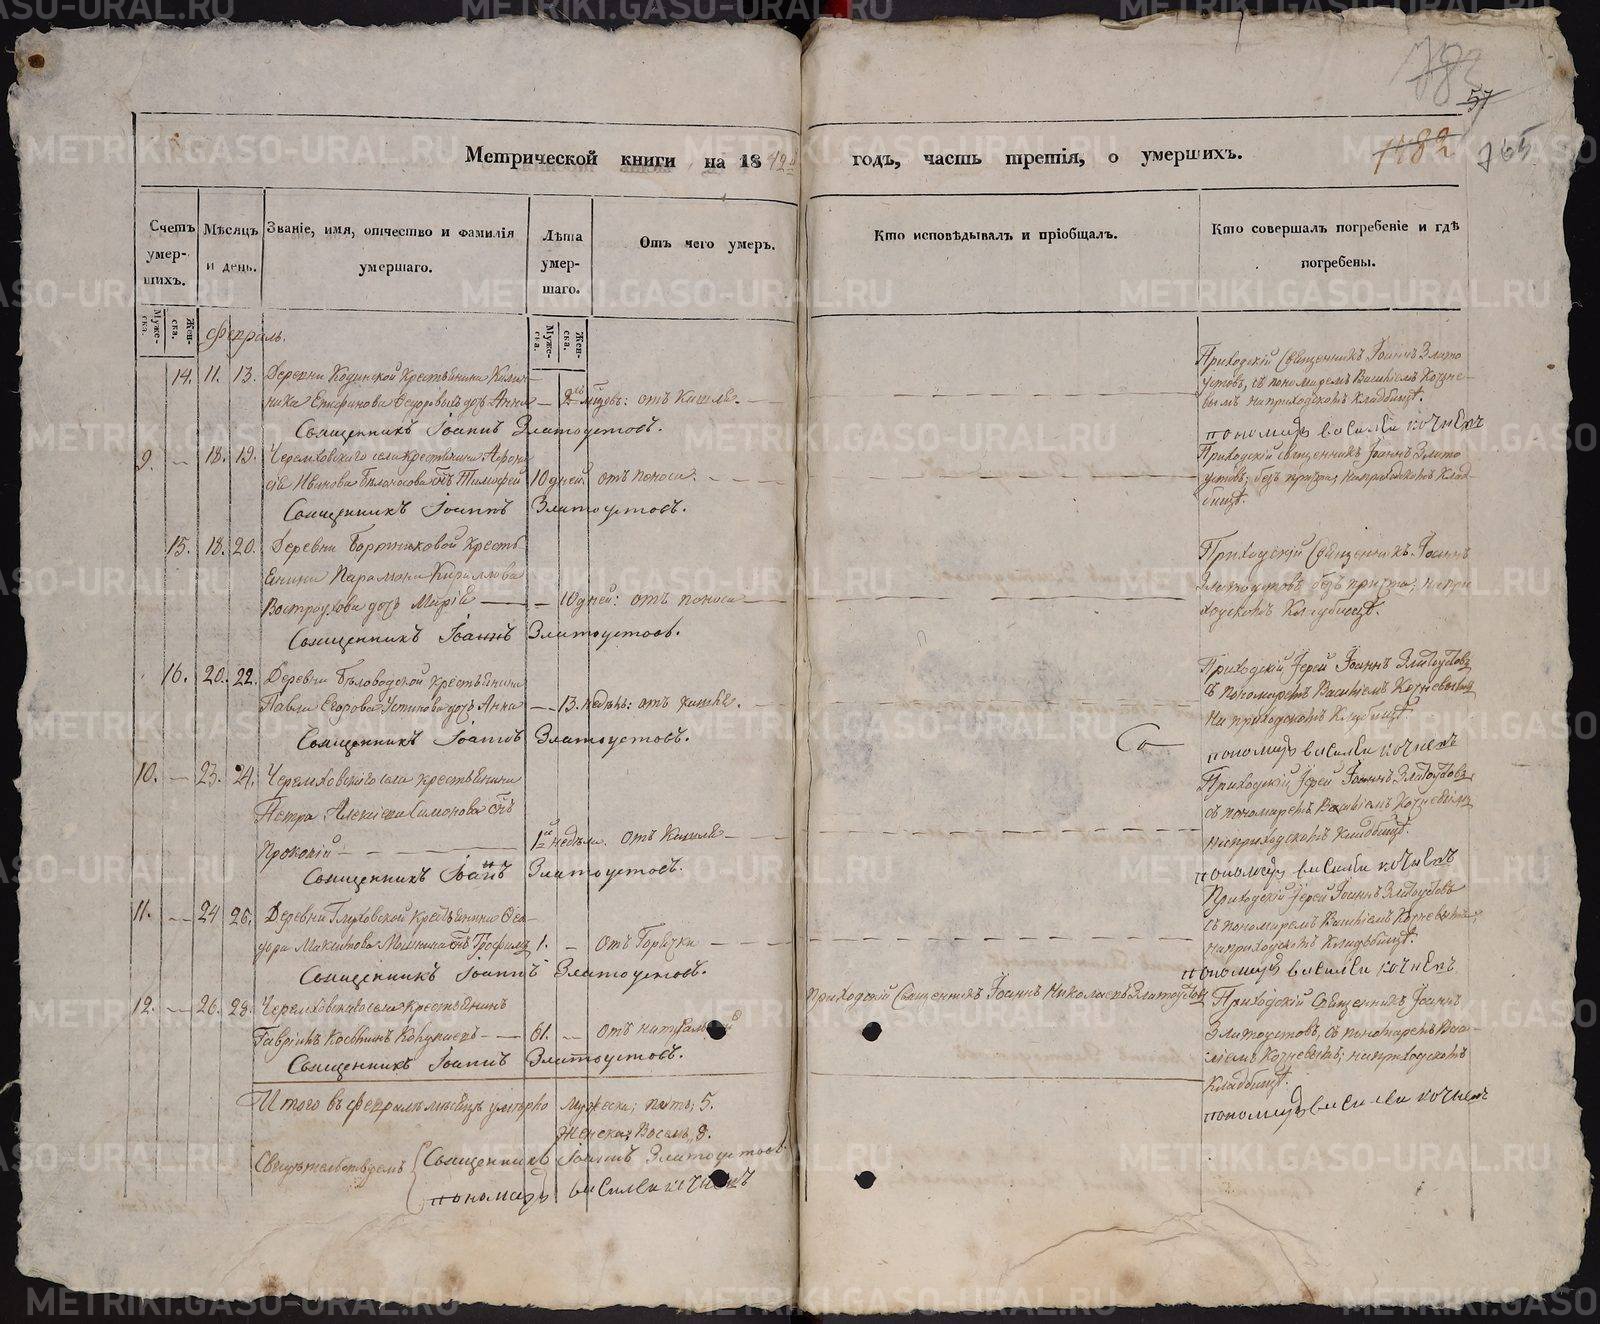 783
57
1782 765
Метрической книги на 1842й годъ, часть третія, о умершихъ.
Счетъ умер-шихъ.
Мѣсяцъ и день.
Званіе, имя, отчество и фамилія умершаго.
Лѣта умер-шаго.
Отъ чего умеръ.
Кто исповѣдывалъ и пріобщалъ.
Кто совершалъ погребеніе и гдѣ погребены.
Муже-ска. Жен-ска.
Муже-ска. Жен-ска.
Февраль.
14. 11. 13. Деревни Кодинской крестьянина
Ѳедоровыхъ дочь Анна — 2хъ мѣсяцовъ: отъ Кашля.
Священникъ Іоаннъ Златоустовъ.
Приходскій Священникъ Іоаннъ Злато
устовъ, съ пономаремъ Василіемъ Кочне-
вымъ на приходскомъ Кладбищѣ.
пономарь василеи кочневъ
9. — 18. 19. Черемховскаго села крестьянина
Иванова Бѣлоносова сынъ Тимофей 10 дней отъ поноса.
Священникъ Іоаннъ Златоустовъ.
Приходскій священникъ Іоаннъ Злато
устовъ, безъ причта, на приходскомъ Клад-
бищѣ.
15. 18. 20. Деревни крестья-
янина Парамона Кириллова
Вострухова дочь Марія — — 10 дней: отъ поноса
Священникъ Іоаннъ Златоустовъ.
Приходскій Священникъ Іоаннъ
Златоустовъ безъ причта, на при-
ходскомъ Кладбищѣ.
16. 20. 22. Деревни Бѣловодской крестьянина
Павла Егорова Устинова дочь Анна — 13. недѣль: отъ кашля.
Священникъ Іоаннъ Златоустовъ.
Приходскій Іерей Іоаннъ Златоустовъ
съ пономаремъ Василіемъ Кочневымъ
на приходскомъ Кладбищѣ.
пономарь василеи кочневъ
10. — 23. 24. Черемховскаго села крестьянина
Петра Алексіева Симонова сынъ
Прокопій — 1й недѣли. отъ Кашля
Священникъ Іоаннъ Златоустовъ.
Приходскій Іерей Іоаннъ Златоустовъ
съ пономаремъ Василіемъ Кочневымъ
на приходскомъ Кладбищѣ.
пономарь василеи кочневъ
11. — 24 26. Деревни Глуховской крестьянина Ѳео-
дора Максимова сынъ Трофимъ 1. — отъ Горячки
Священникъ Іоаннъ Златоустовъ.
Приходскій Іерей Іоаннъ Златоустовъ
съ пономаремъ Василіемъ Кочневымъ,
на приходскомъ Кладбищѣ.
пономарь василеи кочневъ
12. — 26. 28. Черемховскаго села крестьянинъ
Гавріилъ Косминъ — 61. — отъ
Священникъ Іоаннъ Златоустовъ.
Приходскій Священникъ Іоаннъ Николаевъ Златоустовъ
Приходскій Священникъ Іоаннъ
Златоустовъ, съ пономаремъ Васи-
ліемъ Кочневымъ, на приходскомъ
Кладбищѣ.
пономарь василеи кочневъ
Итого въ февралѣ мѣсяцѣ умерло мужеска; пять, 5.
Женска; Восемь, 8.
Свидѣтельствуемъ Священникъ Іоаннъ Златоустовъ.
пономарь василеи кочневъ